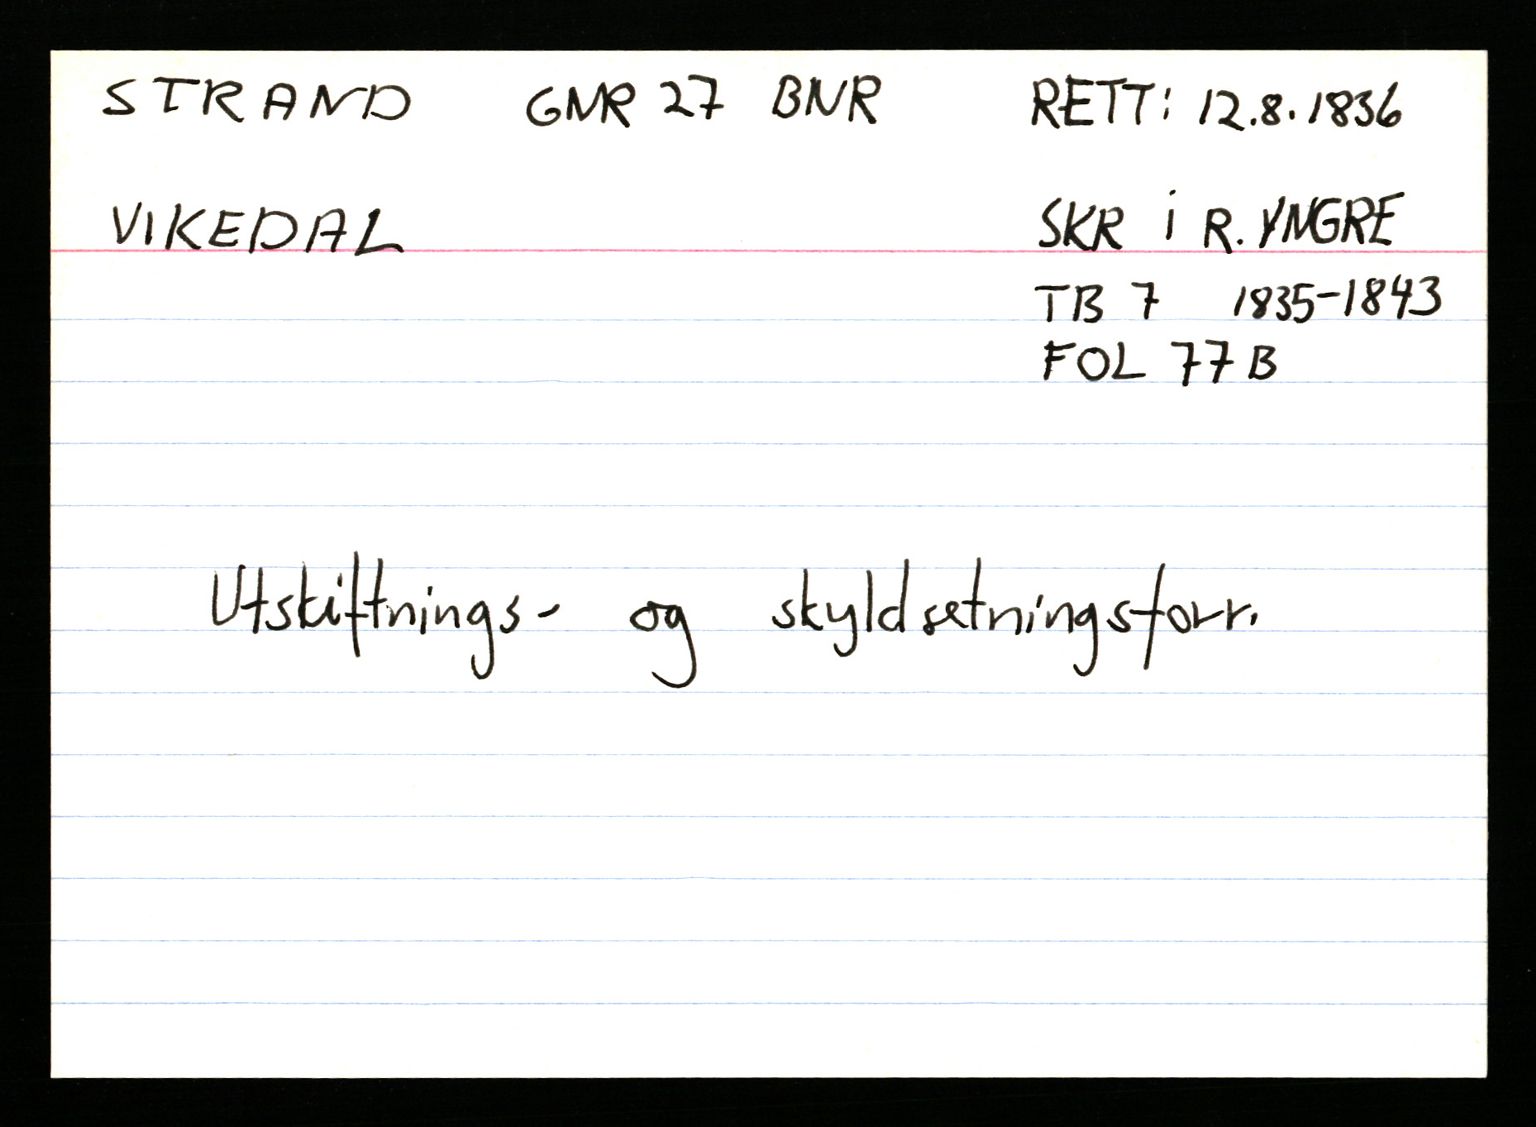 STRAND GNR 27 BNR RETT: 12.8.1836
VIKEDAL SKR i R. YNGRE
TB 7 1835-1843
FOL 77B
Utskiftnings- og skyldsetningsforr.